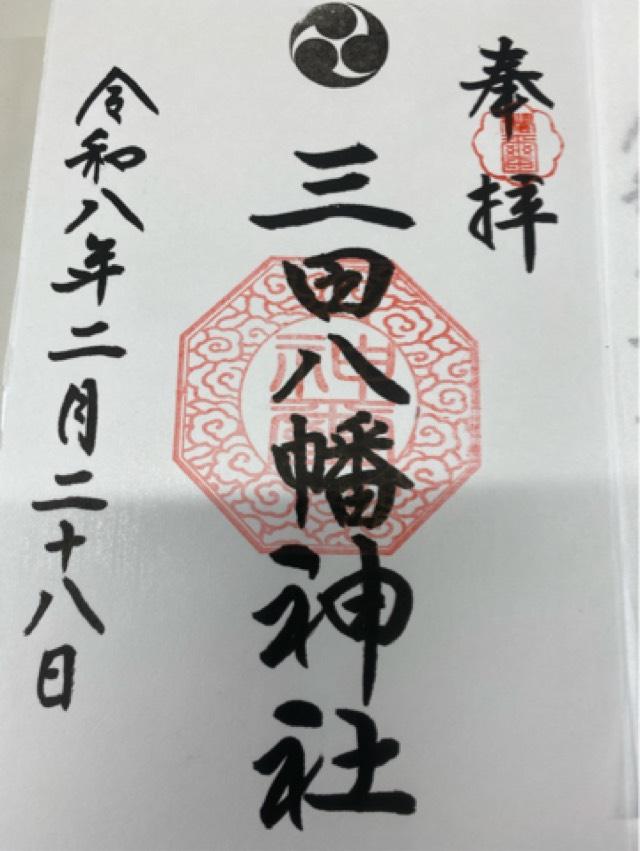 奉拝
三田八幡神社
令和八年二月二十八日